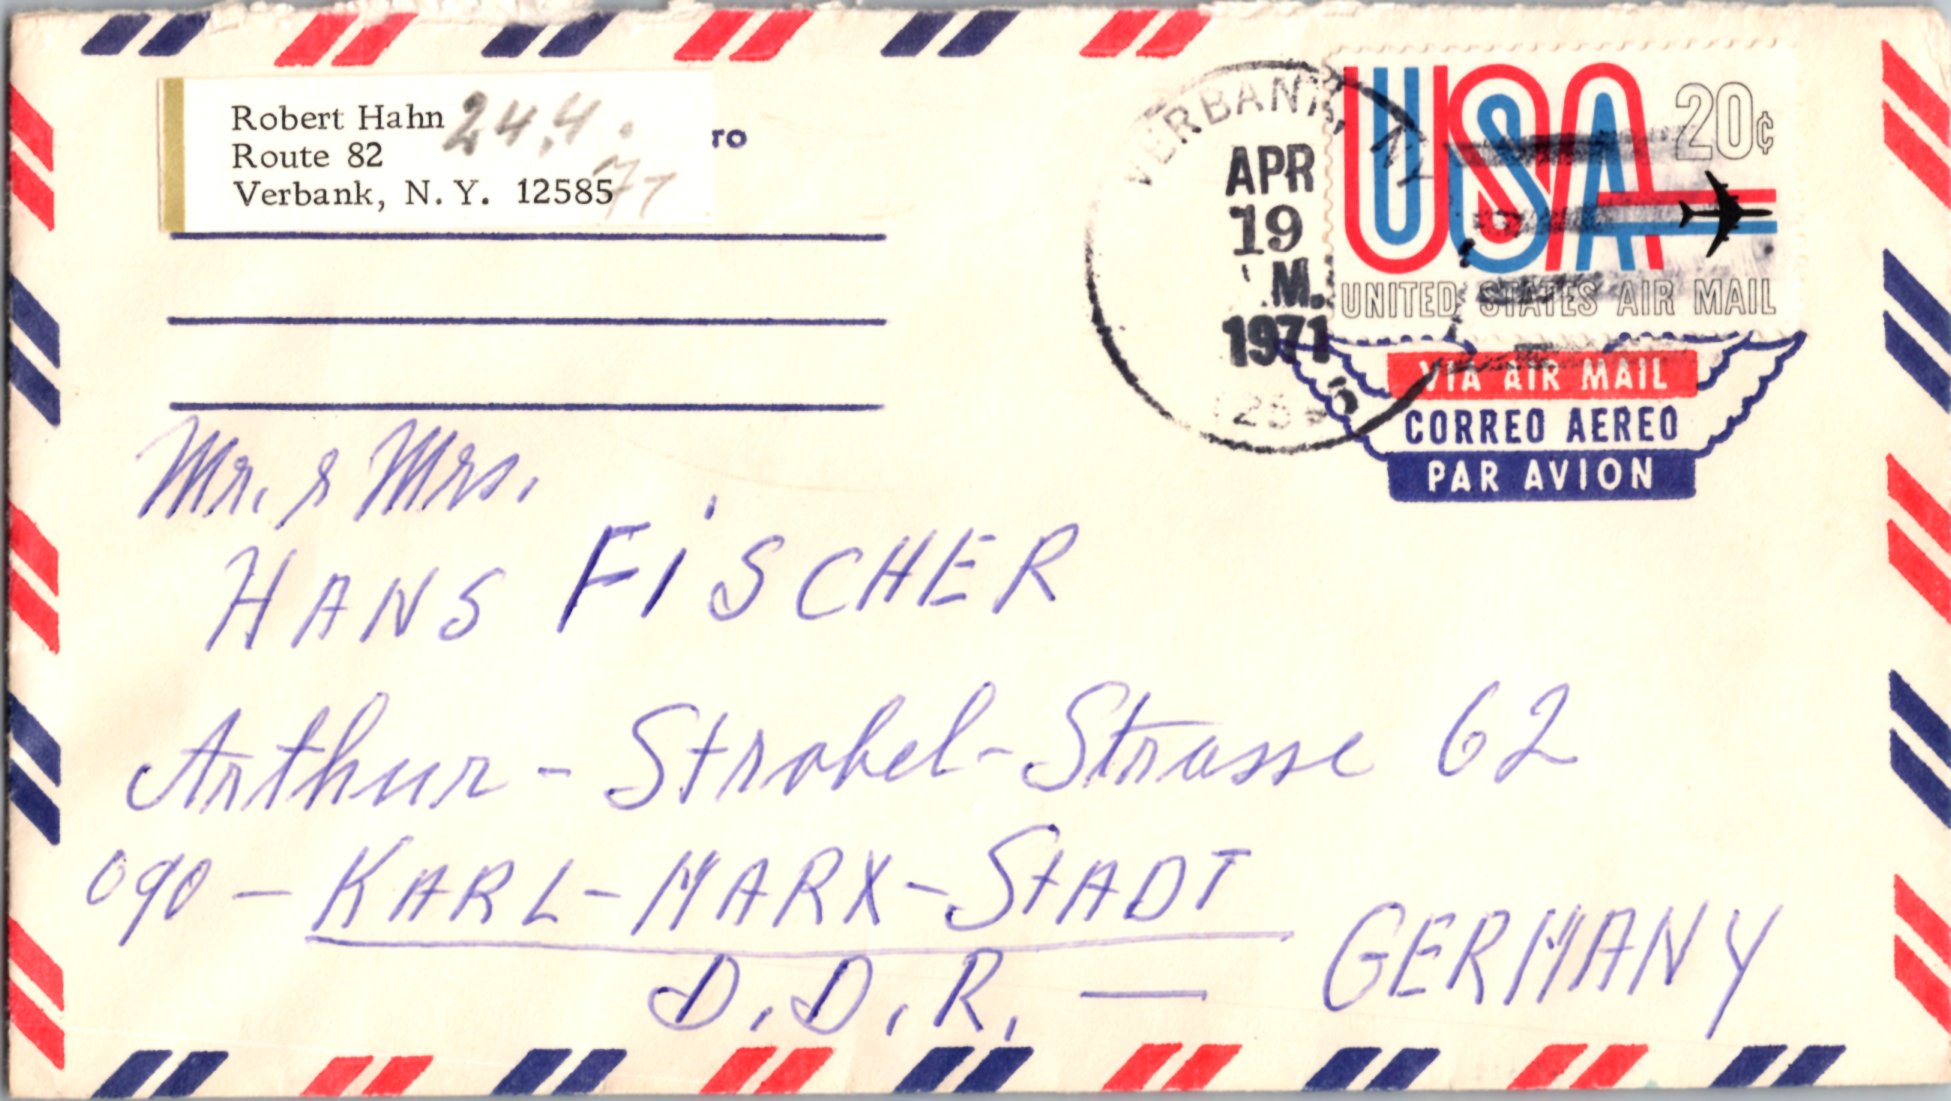 Robert Hahn 24.4.
ro
Route 82
Verbank, N. Y. 12585 71
VERBANK, NY
APR
19
M.
1971
USA 20¢
UNITED STATES AIR MAIL
VIA AIR MAIL
CORREO AEREO
PAR AVION
Mr. & Mrs.
HANS FiSCHER
Arthur-Strobel-Strasse 62
090 - KARL-MARX-STADT
D.D.R. — GERMANY